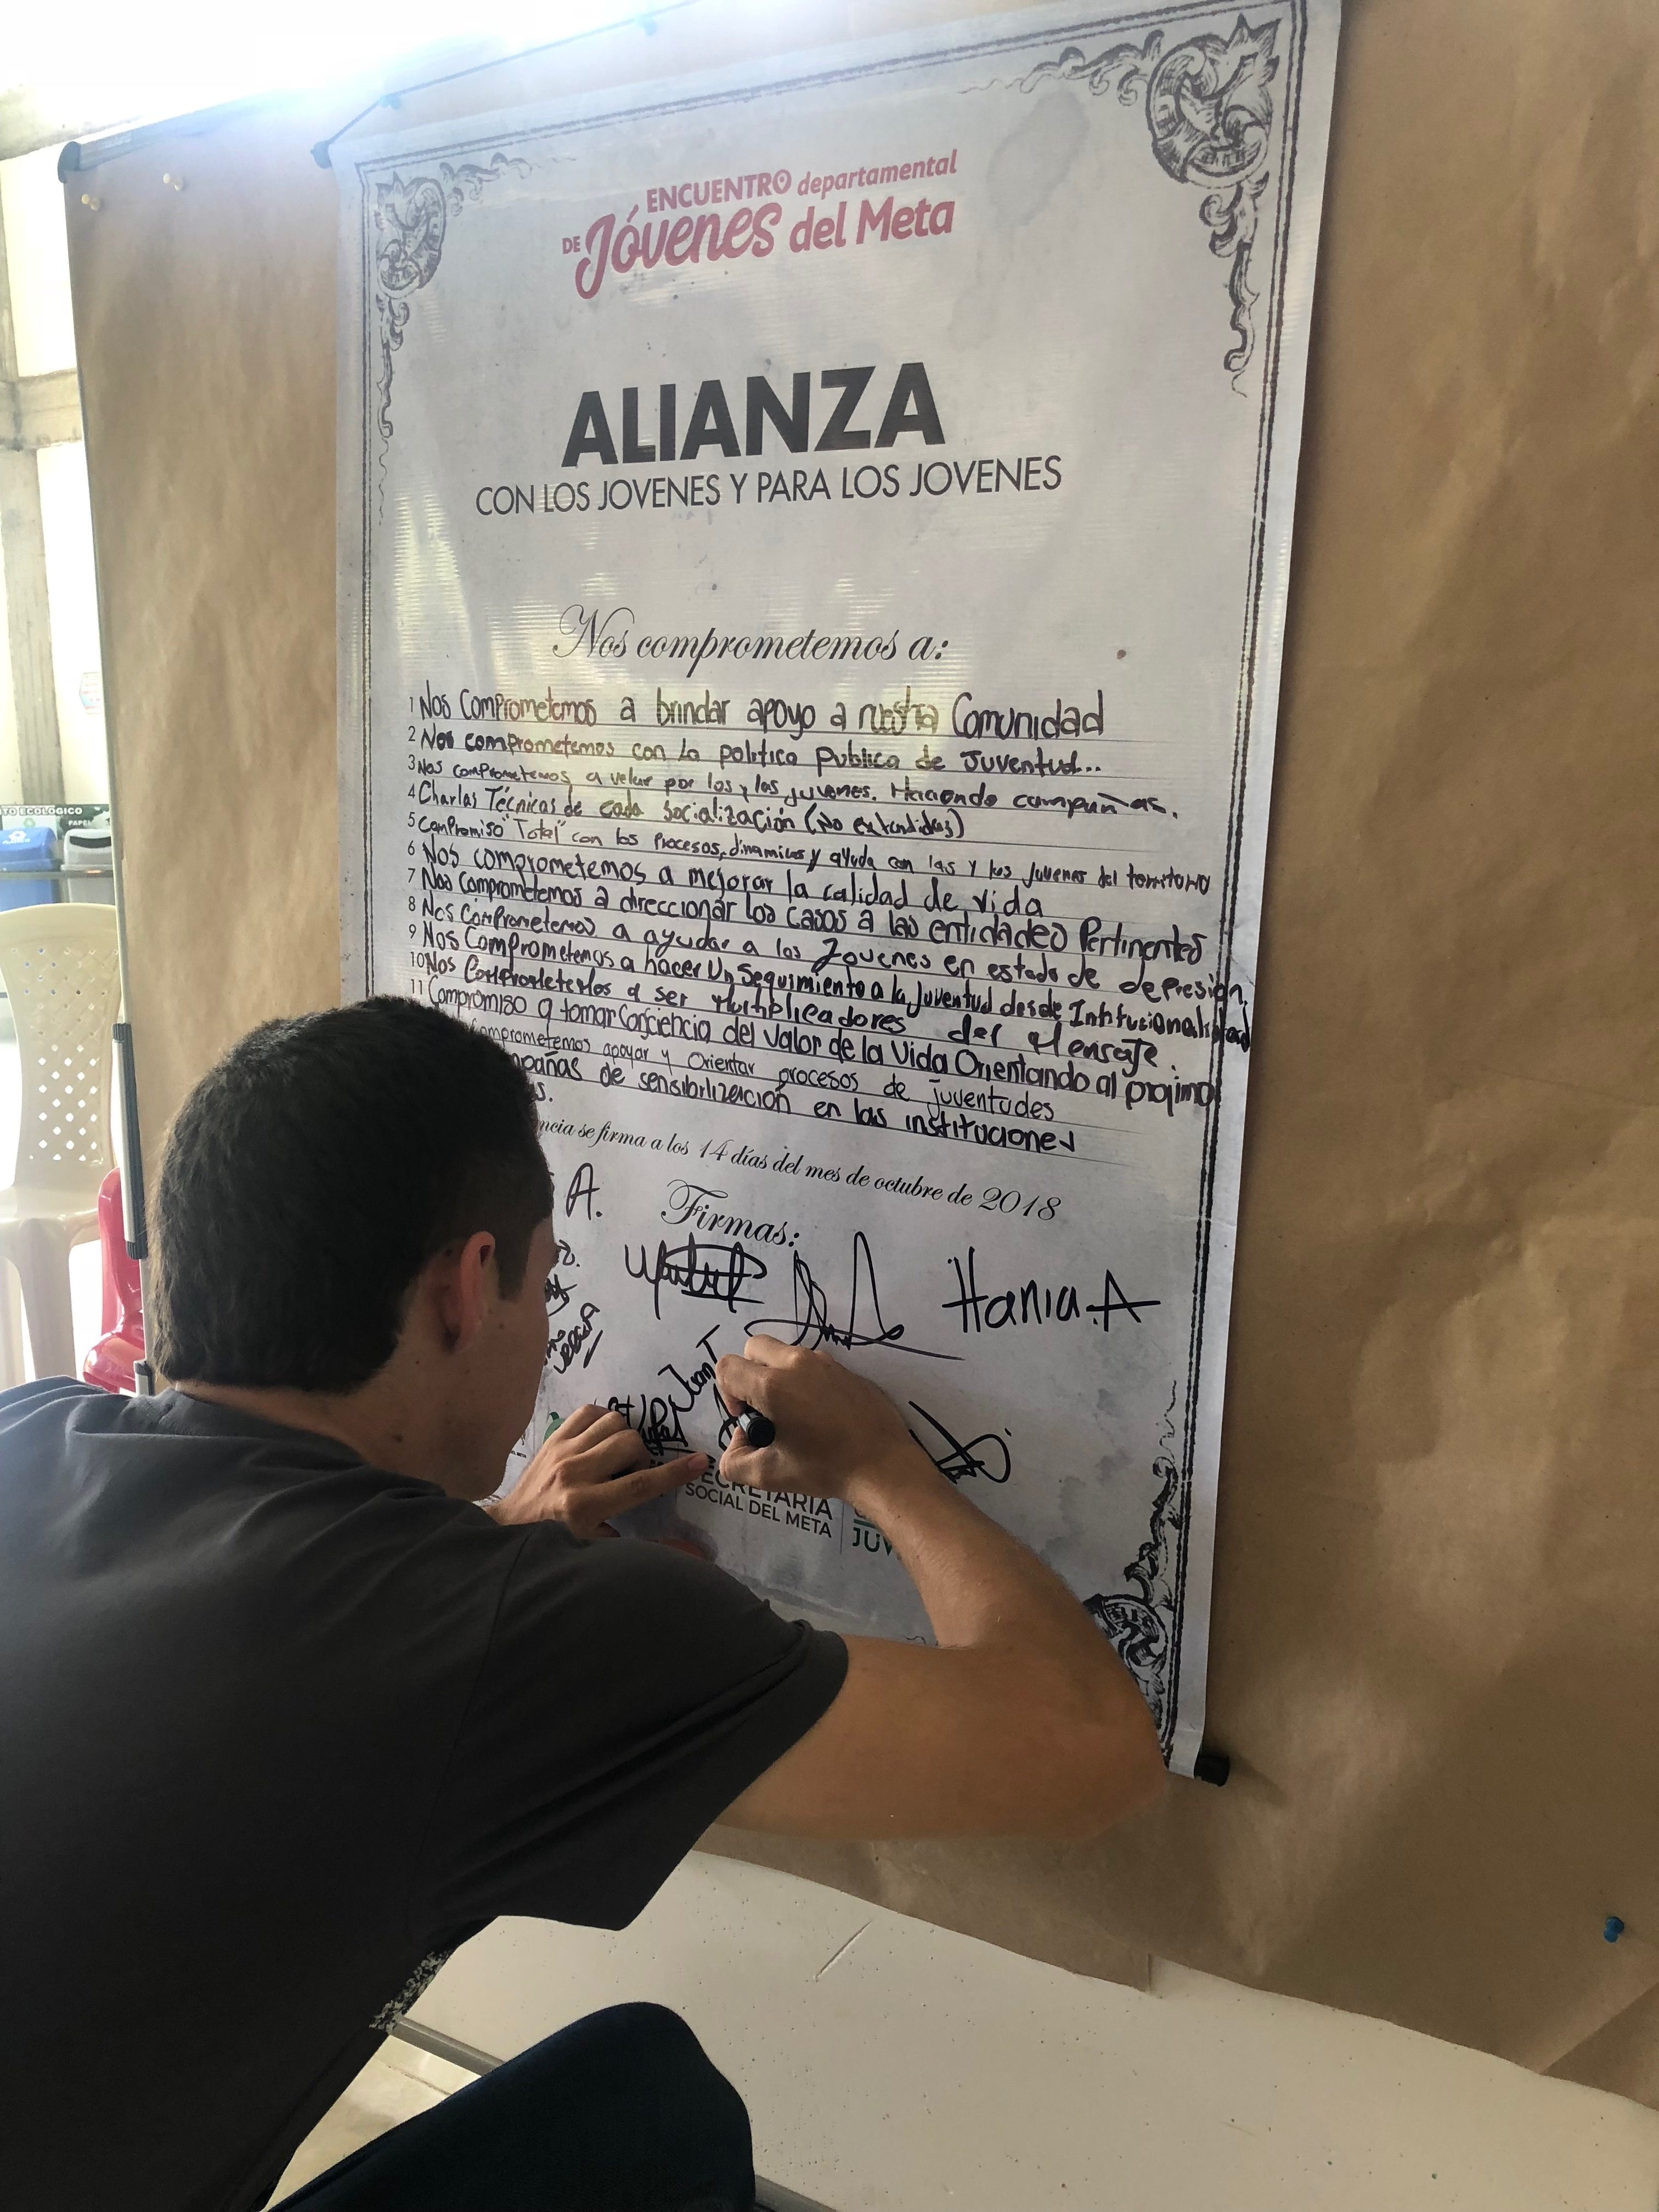 ENCUENTRO departamental
DE Jóvenes del Meta
ALIANZA
CON LOS JOVENES Y PARA LOS JOVENES
Nos comprometemos a:
1 Nos Comprometemos a brindar apoyo a nuestra Comunidad
2 Nos comprometemos con la politica publica de Juventud...
3 Nos comprometemos a velar por los y las juvenes. Haciendo campañas.
4 Charlas Técnicas de cada Socialización (No extendidas)
5 Compromiso "Total" con los Procesos, dinamicas y ayuda con las y los juvenes del territorio
6 Nos comprometemos a mejorar la calidad de vida
7 Nos Comprometemos a direccionar los casos a las entidades Pertinentes
8 Nos Comprometemos a ayudar a los Jovenes en estado de depresión,
9 Nos Comprometemos a hacer Un Seguimiento a la Juventud desde
10 Nos Comprometemos a ser Multiplicadores del Mensaje.
11 Compromiso a tomar Conciencia del Valor de la Vida Orientando al projimo
comprometemos apoyar y Orientar procesos de juventudes
pañas de sensibilización en las instituciones
s.
ncia se firma a los 14 días del mes de octubre de 2018
A.
Firmas:
Hania.A
Juan T
SECRETARIA
SOCIAL DEL META
JUV
TO ECOLÓGICO
PAPEL